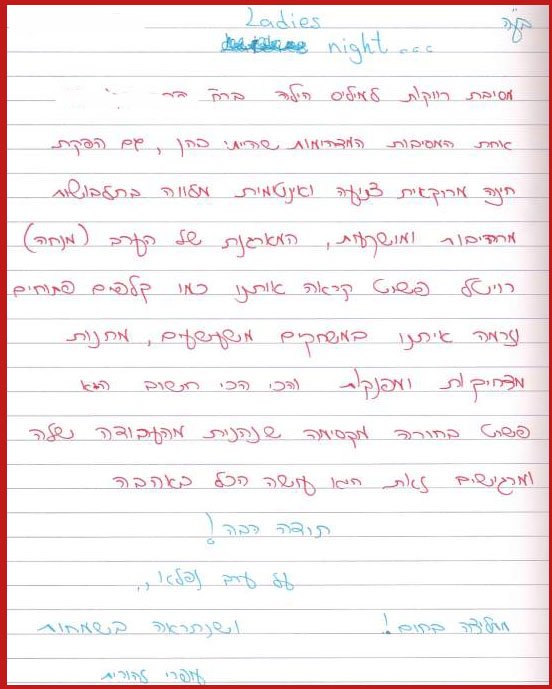 בע"ה
Ladies
night...
מסיבת רווקות למילים הילה בר
אחת המסיבות המדהימות שהייתי בהן, עם הפקת
חינה מרוקאית צנועה ואינטימית מלווה בתלבושות
מרהיבות ומושקעות, המארגנת של הערב (מנחה)
רויטל פשוט קראה אותנו כמו קלפים פתוחים
וזרמה איתנו במשחקים משעשעים, מתנות
מצחיקות ומפנקות והכי הכי חשוב הוא
פשוט בחורה מקסימה שנהנית מהעבודה שלה
ומרגישים זאת היא עושה הכל באהבה
תודה רבה!
על ערב נפלא,,
ממליצה בחום!
ושנתראה בשמחות
עופרי